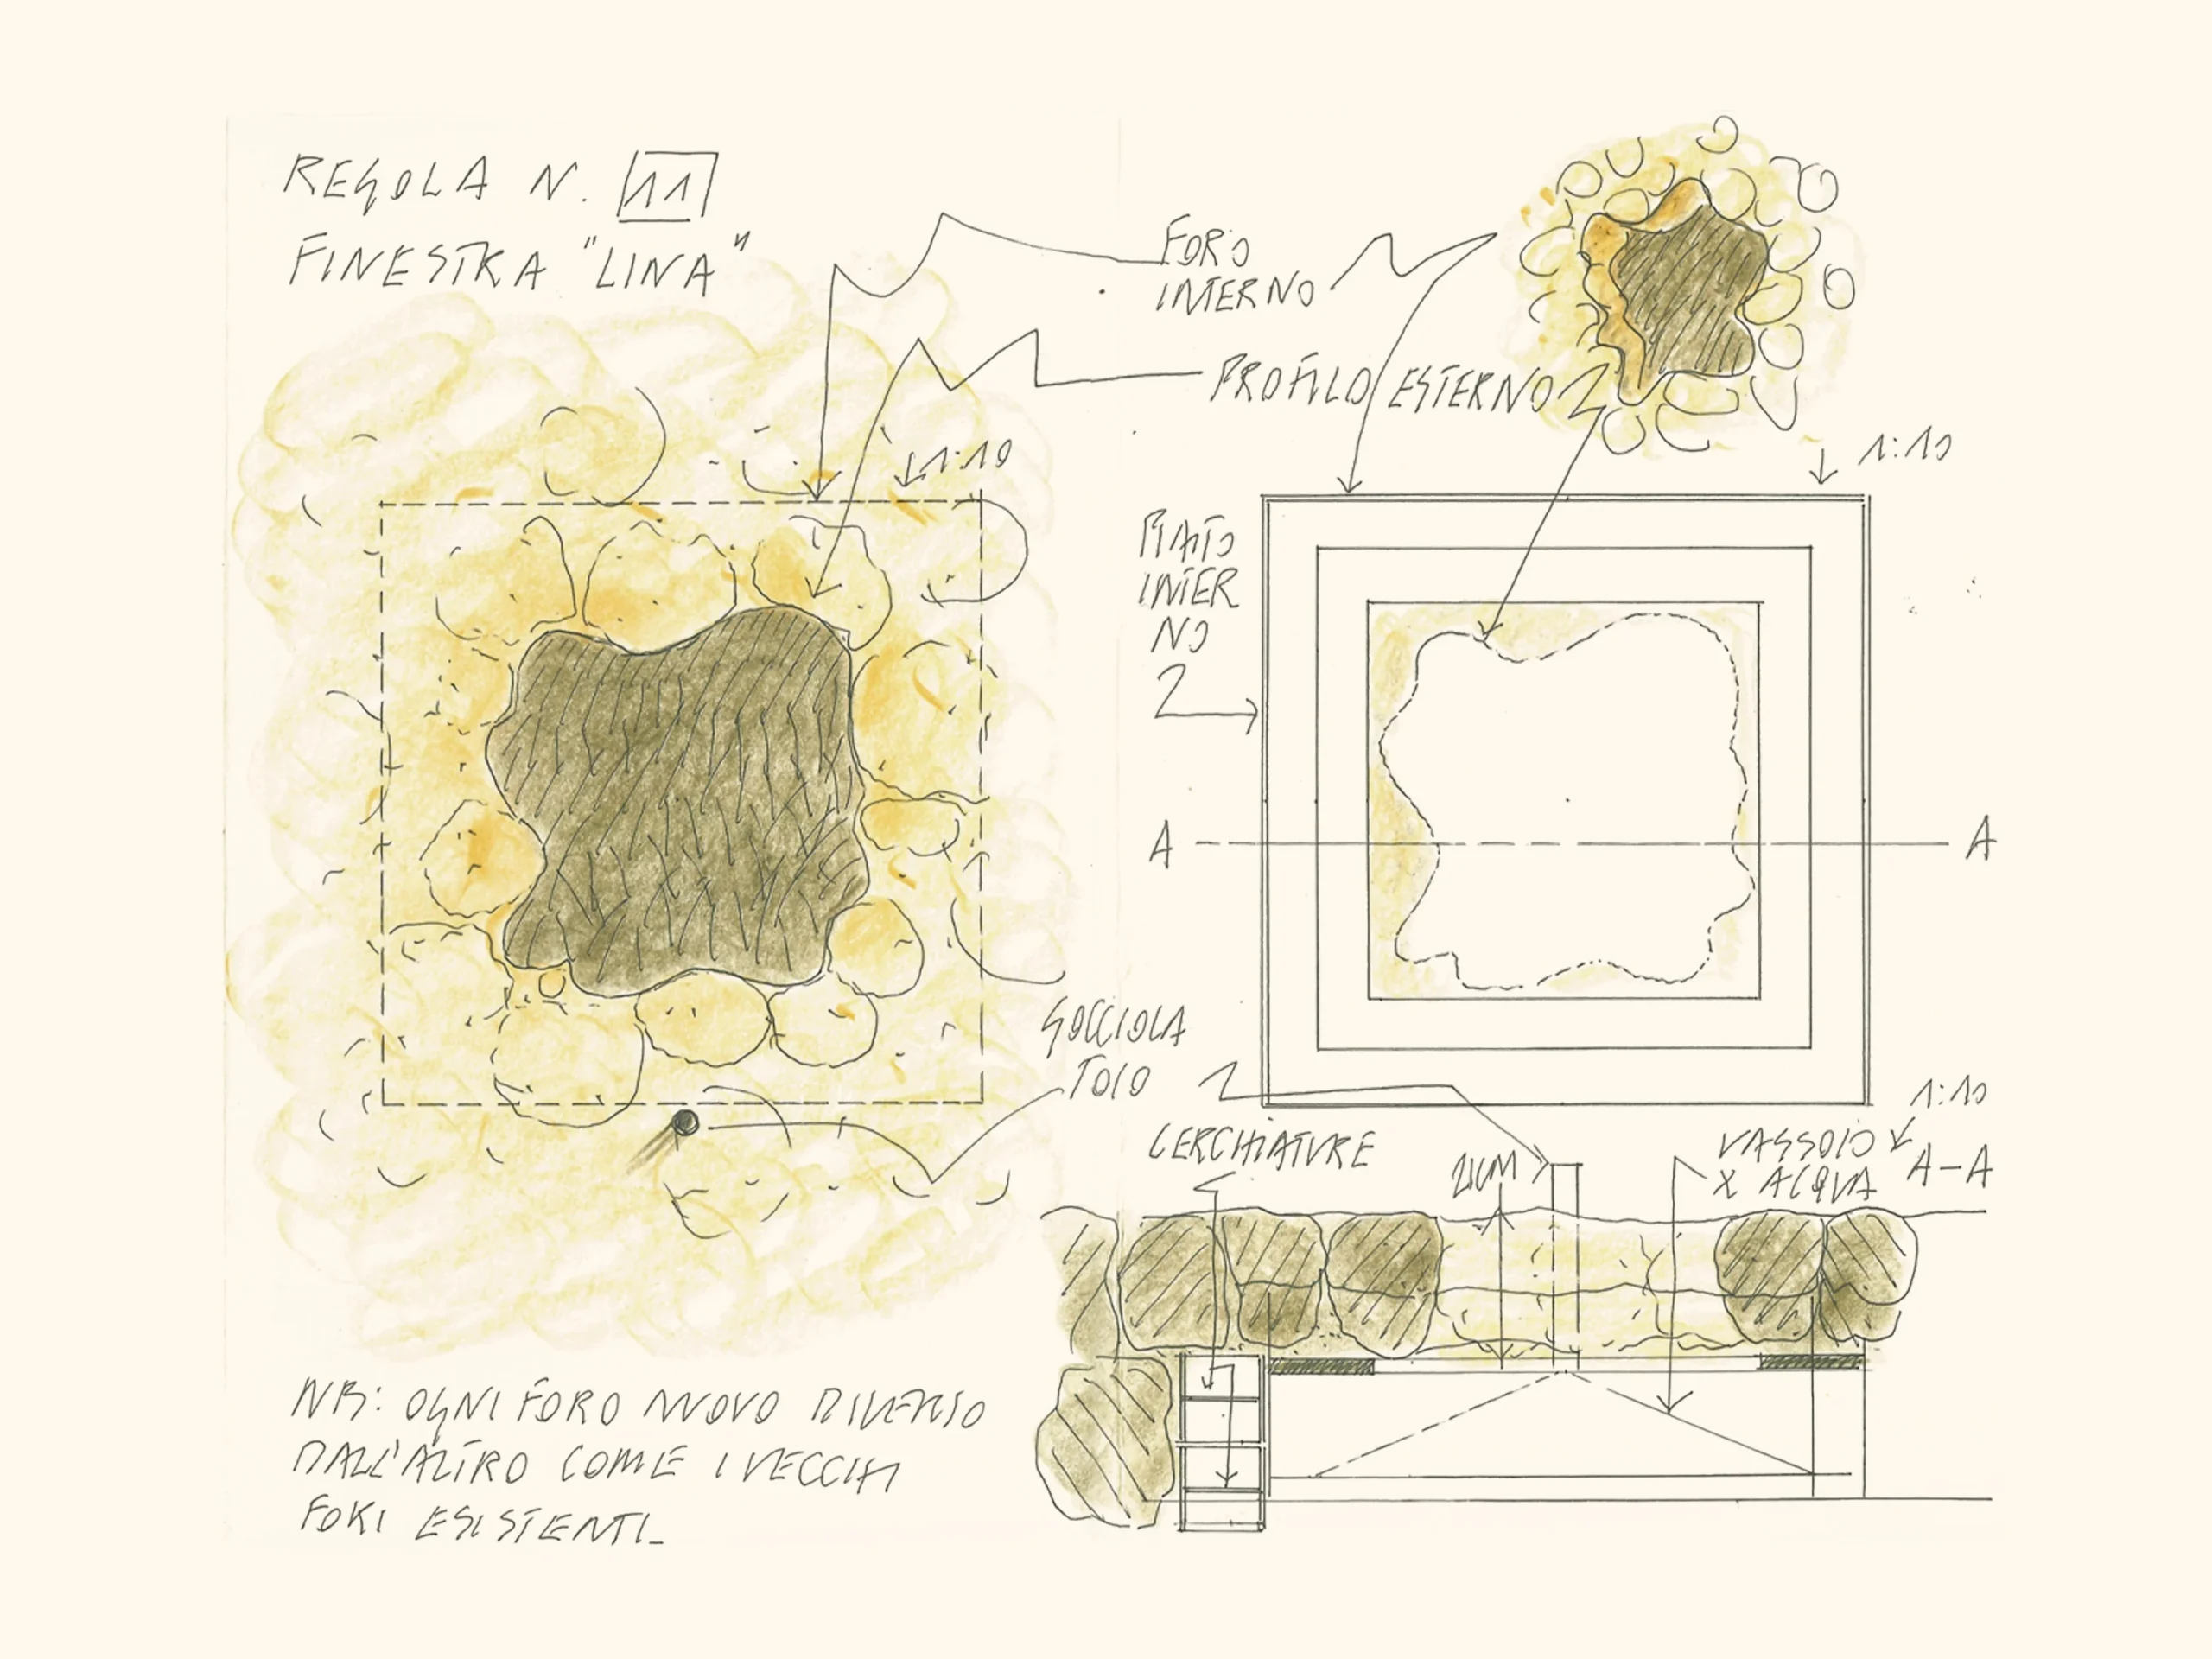 REGOLA N. 11
FINESTRA "LINA"
FORO
INTERNO
PROFILO ESTERNO
1:10
1:10
PIATTO
INTER
NO
A
A
GOCCIOLA
TOIO
1:10
CERCHIATURE
VASSOIO
X ACQUA
A-A
NB: OGNI FORO NUOVO DIVERSO
DALL'ALTRO COME I VECCHI
FORI ESISTENTI_